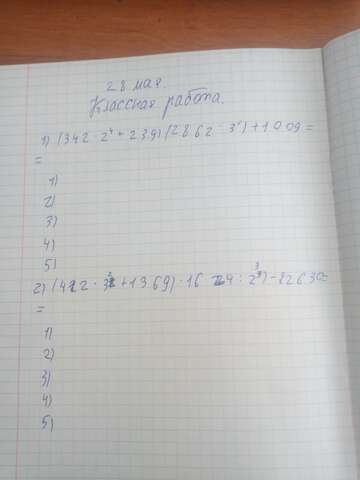 28 мая.
Классная работа.
1) (342 · 2⁴ + 239) (2862 : 3³) + 1009 =
=
1)
2)
3)
4)
5)
2) (412 · 3² + 1369) · 16 24 : 2³) - 22630=
=
1)
2)
3)
4)
5)